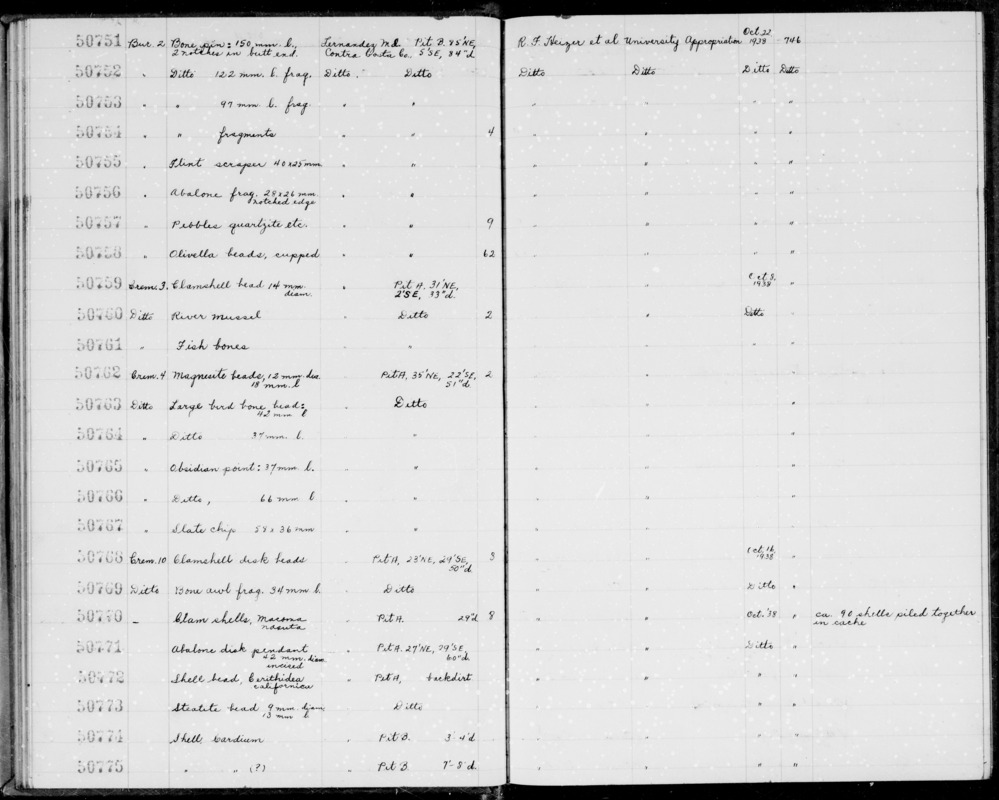 50751 Bur. 2 Bone pin: 150 mm. l., Fernandez Md. Pit B. 85'NE, R. F. Heizer et al University Appropriation Oct. 22 1938 746
2 notches in butt end. Contra Costa Co. 5'SE, 84"d
50752 " Ditto 122 mm. l. frag. Ditto. Ditto Ditto Ditto Ditto Ditto
50753 " " 97 mm. l. frag " " " " " "
50754 " " fragments " " 4 " " " "
50755 " Flint scraper 40x25mm " " " " " "
50756 " Abalone frag. 28x26 mm. " " " " " "
notched edge
50757 " Pebbles quartzite etc. " " 9 " " " "
50758 " Olivella beads, cupped " " 62 " " " "
50759 Crem. 3. Clamshell bead 14 mm. " Pit A. 31'NE, " " Oct. 9, 1938 "
diam. 2'SE, 33"d.
50760 Ditto River mussel " Ditto 2 " " Ditto "
50761 " Fish bones " " " " " "
50762 Crem. 4 Magnesite beads, 12 mm. dia. " Pit A, 35'NE, 22'SE, 2 " " " "
18 mm. l 51"d
50763 Ditto Large bird bone bead: " Ditto " " " "
42 mm l
50764 " Ditto 37 mm. l. " " " " " "
50765 " Obsidian point: 37 mm l. " " " " " "
50766 " Ditto, 66 mm l " " " " " "
50767 " Slate chip 58 x 36 mm " " " " " "
50768 Crem. 10 Clamshell disk beads " Pit A, 23'NE, 29'SE, 3 " " Oct. 16, 1938 "
50"d
50769 Ditto Bone awl frag. 34 mm l. " Ditto " " Ditto "
50770 – Clam shells, Macoma " Pit A. 29"d 8 " " Oct. '38 " ca. 90 shells piled together
nasuta in cache
50771 Abalone disk pendant " Pit A. 27'NE, 29'SE, " " Ditto "
42 mm. diam 60"d
incised
50772 Shell bead, Cerithidea " Pit A, backdirt " " " "
californica
50773 Steatite bead 9 mm. diam, " Ditto " " " "
13 mm l
50774 Shell, Cardium " Pit B. 3'-4'd " " " "
50775 " " (?) " Pit B 7'-8'd. " " " "